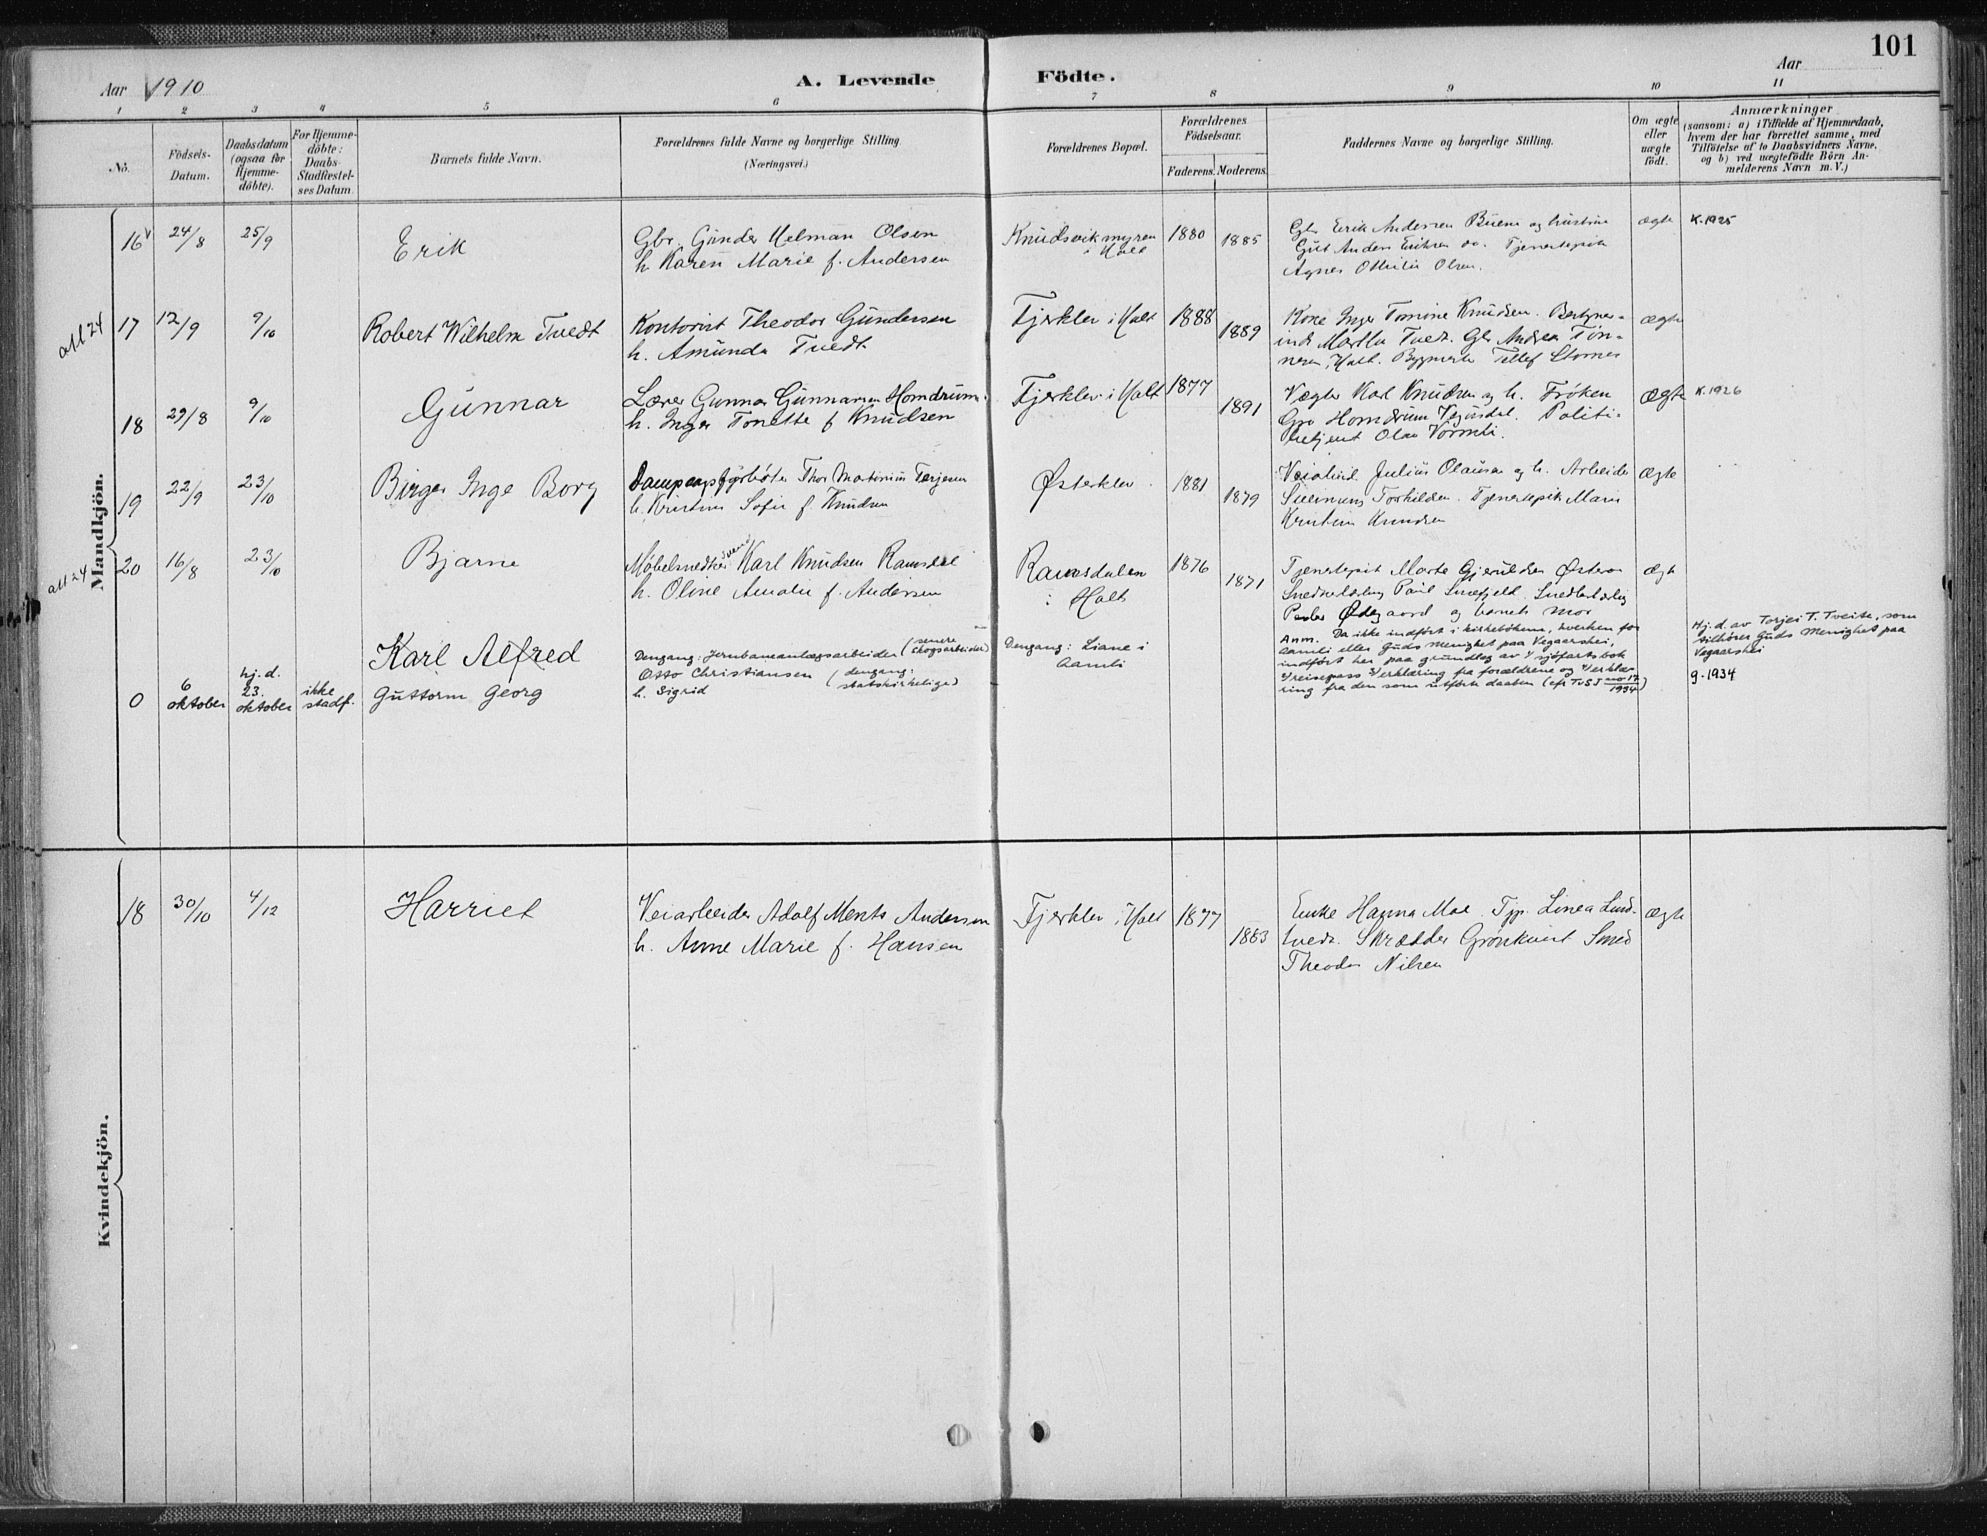 101
Aar 1910
A. Levende Födte.
Aar
1 2 3 4 5 6 7 8 9 10 11
No.
Födsels-Datum.
Daabsdatum (ogsaa for Hjemme-döbte).
For Hjemme-döbte: Daabs-Stadfæstel-ses Datum.
Barnets fulde Navn.
Forældrenes fulde Navne og borgerlige Stilling
(Næringsvei.)
Forældrenes Bopæl.
Forældrenes Födselsaar.
Faderens. Moderens.
Faddernes Navne og borgerlige Stilling.
Om ægte eller uægte født.
Anmærkninger
(saasom: a) i Tilfælde af Hjemmedaab,
hvem der har forrettet samme, med
Tilföielse af to Daabsvidners Navne,
og b) ved uægtefödte Börn An-
melderens Navn m.V.)
Mandkjön.
16 24/8 25/9 Erik
Gbr. Gunder Helman Olsen
h. Karen Marie f. Andersen
Knudsvikmyren
i Holt
1880 1885
Gbr Erik Andersen Buene og hustru
Gut Anders Eriksen do. Tjenestepik
Agnes Othilie Olsen.
ægte K.1925
att 24
17 12/9 9/10 Robert Wilhelm Tvedt
Kontorist Theodor Gundersen
h. Amunda Tvedt
Fjerklev i Holt 1888 1889
Kone Inger Tomine Knudsen. Bestyrer-
inde Martha Tvedt. Gbr Andreas Tøn-
nesen, Holt. Bygmester Tellef Stornes
ægte
18 29/8 9/10 Gunnar
Lærer Gunnar Gunnarsen Homdrum
h. Inger Tonette f Knudsen
Fjerklev i Holt 1877 1891
Vægter Karl Knudsen og h. Frøken
Gro Homdrum Vegusdal. Politi-
betjent Olav
ægte K.1926
19 22/9 23/10 Birger Inge Borg
Dampsagsfyrbøter Thor Martinius Terjesen
h. Kristine Sofie f. Knudsen
Østerklev 1881 1879
Julius Olausen og h. Arbeider
Torkildsen. Tjenestepik Maren
Kristine Knudsen
ægte
att 24
20 16/8 23/10 Bjarne
Møbelsnedkersvend Karl Knudsen Ramsdal
h. Oline Amalie f. Andersen
Ramsdalen
i Holt
1876 1871
Tjenestepik Marte Gjeruldsen Østeraa
Snedkerlærling Paul Snefjeld. Snedkerlærling
Peder Ødegaard og barnets mor
ægte
0 6 oktober
hj.d. 23. oktober
ikke stadf.
Karl Alfred
Guttorm Georg
Dengang: Jernbaneanlægsarbeider (senere skogsarbeider)
Otto Christiansen (dengang:
h. Sigrid statskirkelige)
Dengang: Liane i
Aamli
Anm. Da ikke indført i kirkebøkerne, hverken for
Aamli eller Guds Menighet paa Vegaarshei,
indført her paa grundlag av 1/ sjøfartsbok
2/ reisepass 3/ erklæring fra forældrene og 4/ erklæ-
ring fra den som utførte daaben (efr TvSJ no 17 1934)
Hj. d. av Torjei T. Tveite, som
tilhører Guds Menighet paa
Vegaarshei
9-1934
Kvindekjön.
18 30/10 4/12 Harriet
Veiarbeider Adolf Ments Andersen
h. Anne Marie f. Hansen
Fjerklev i Holt 1877 1883
Enke Hanna Moe. Tjp. Linea Lind-
tvedt. Skrædder Grønkvist Smed
Theodor Nilsen
ægte